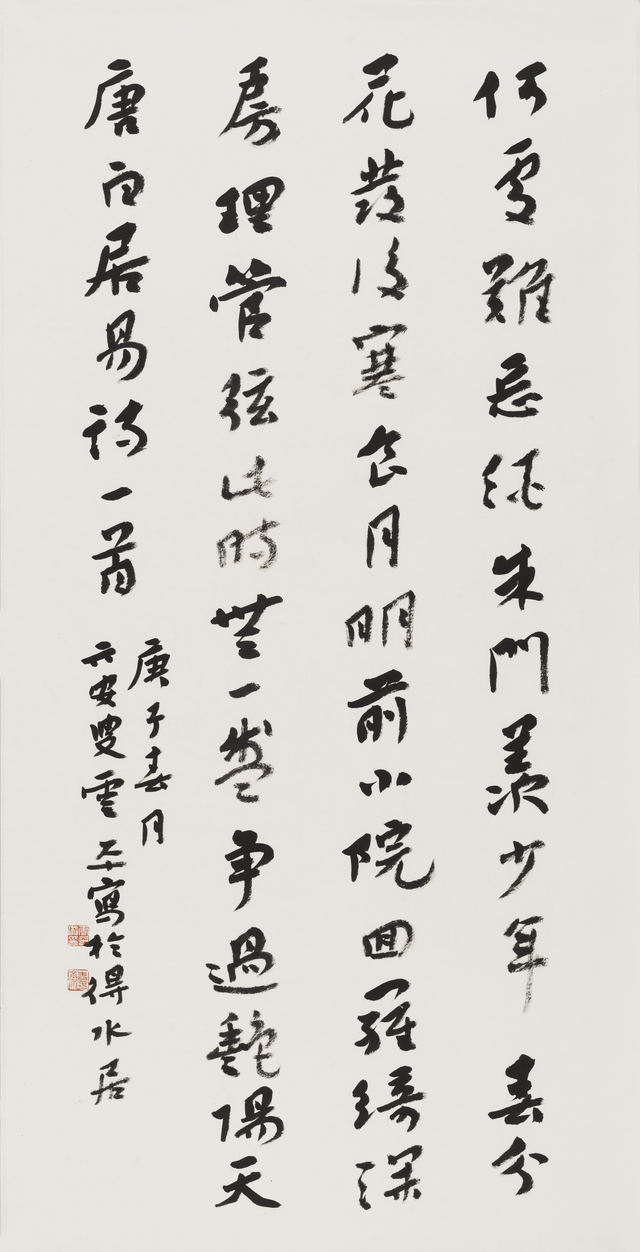 何處難忘酒朱門羨少年春分
花發後寒食月明前小院回羅綺深
房理管弦此時無一盞爭過艷陽天
唐白居易詩一首
庚子春月
六安叟雲寫於得水居